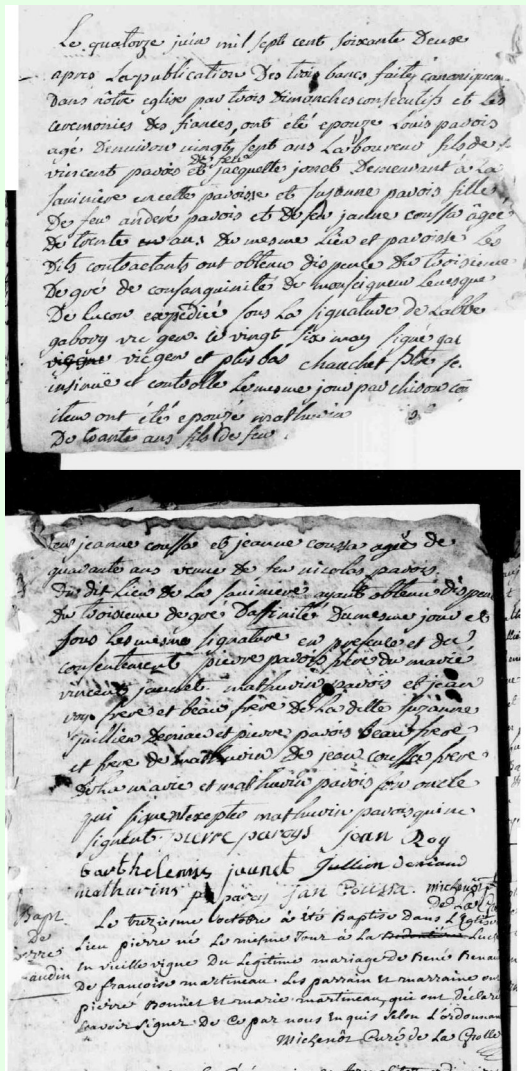 Le quatorze juin mil sept cent soixante Deux
apres La publication Des trois bancs faites canoniquem
Dans nôtre eglise par trois Dimanches consecutifs et Les
ceremonies des fiances, ont été epouzé Louis pavois
agé Denuiron vingt sept ans Laboureur fils de f
vincent pavois et de feu jacquette jonet Demeurant a La
saminiere en cette paroisse et suzanne pavois fille
De feu andere pavois et de feu janne coussa âgee
de trente ans du mesme Lieu et paroisse Les
Dits contractants ont obtenu dispence Du troisieme
De gré de consanguinité De monseigneur Leuesque
De Lucon expedicé sous La signature de Labbe
gabory vic gen. le vingt six may signé gal
vic gen et plus bas chauchet ptre se.
insinué et controlle Le mesme jour par elison con
item ont étés epouzé mathurin
De trante ans fils de feu
feu jeanne coussa et jeanne coussa agée de
quarante ans veuve de feu nicolas pavois
Du dit Lieu de La saminiere ayant obtenu dispen
Du troisieme de gré Daffinité Du mesme jour et
sous Les mesme signature en presence et du
consentement pierre pavois frère du marié
vincent jaunet mathurin pavois et jean
roy frere et beau frere De La delle suzanne
jullien deniau et pierre pavois beau frere
et frere de mathurin De jean coussa frere
de La marie et mathurin pavois son oncle
qui signent excepter mathurin pavois qui ne
signent. pierre paroys Jean Roy
barthelemy jaunet Jullien deniaud
mathurins paroy Jan Coussa michenot
de La
Bapt
De
pierre
Laudin
Le trezieme octobre à été Baptise Dans L'Eglise
Lieu pierre né Le mesme Jour à La
En vieille vigne Du Legitime mariage De René Renau
De francoise martineau Les parrain et marraine on
pierre Bonnet et marie martineau, qui ont Declaré
scavoir signer De Ce par nous Enquis selon L'ordonnan
Michenot Curé de La Grolle